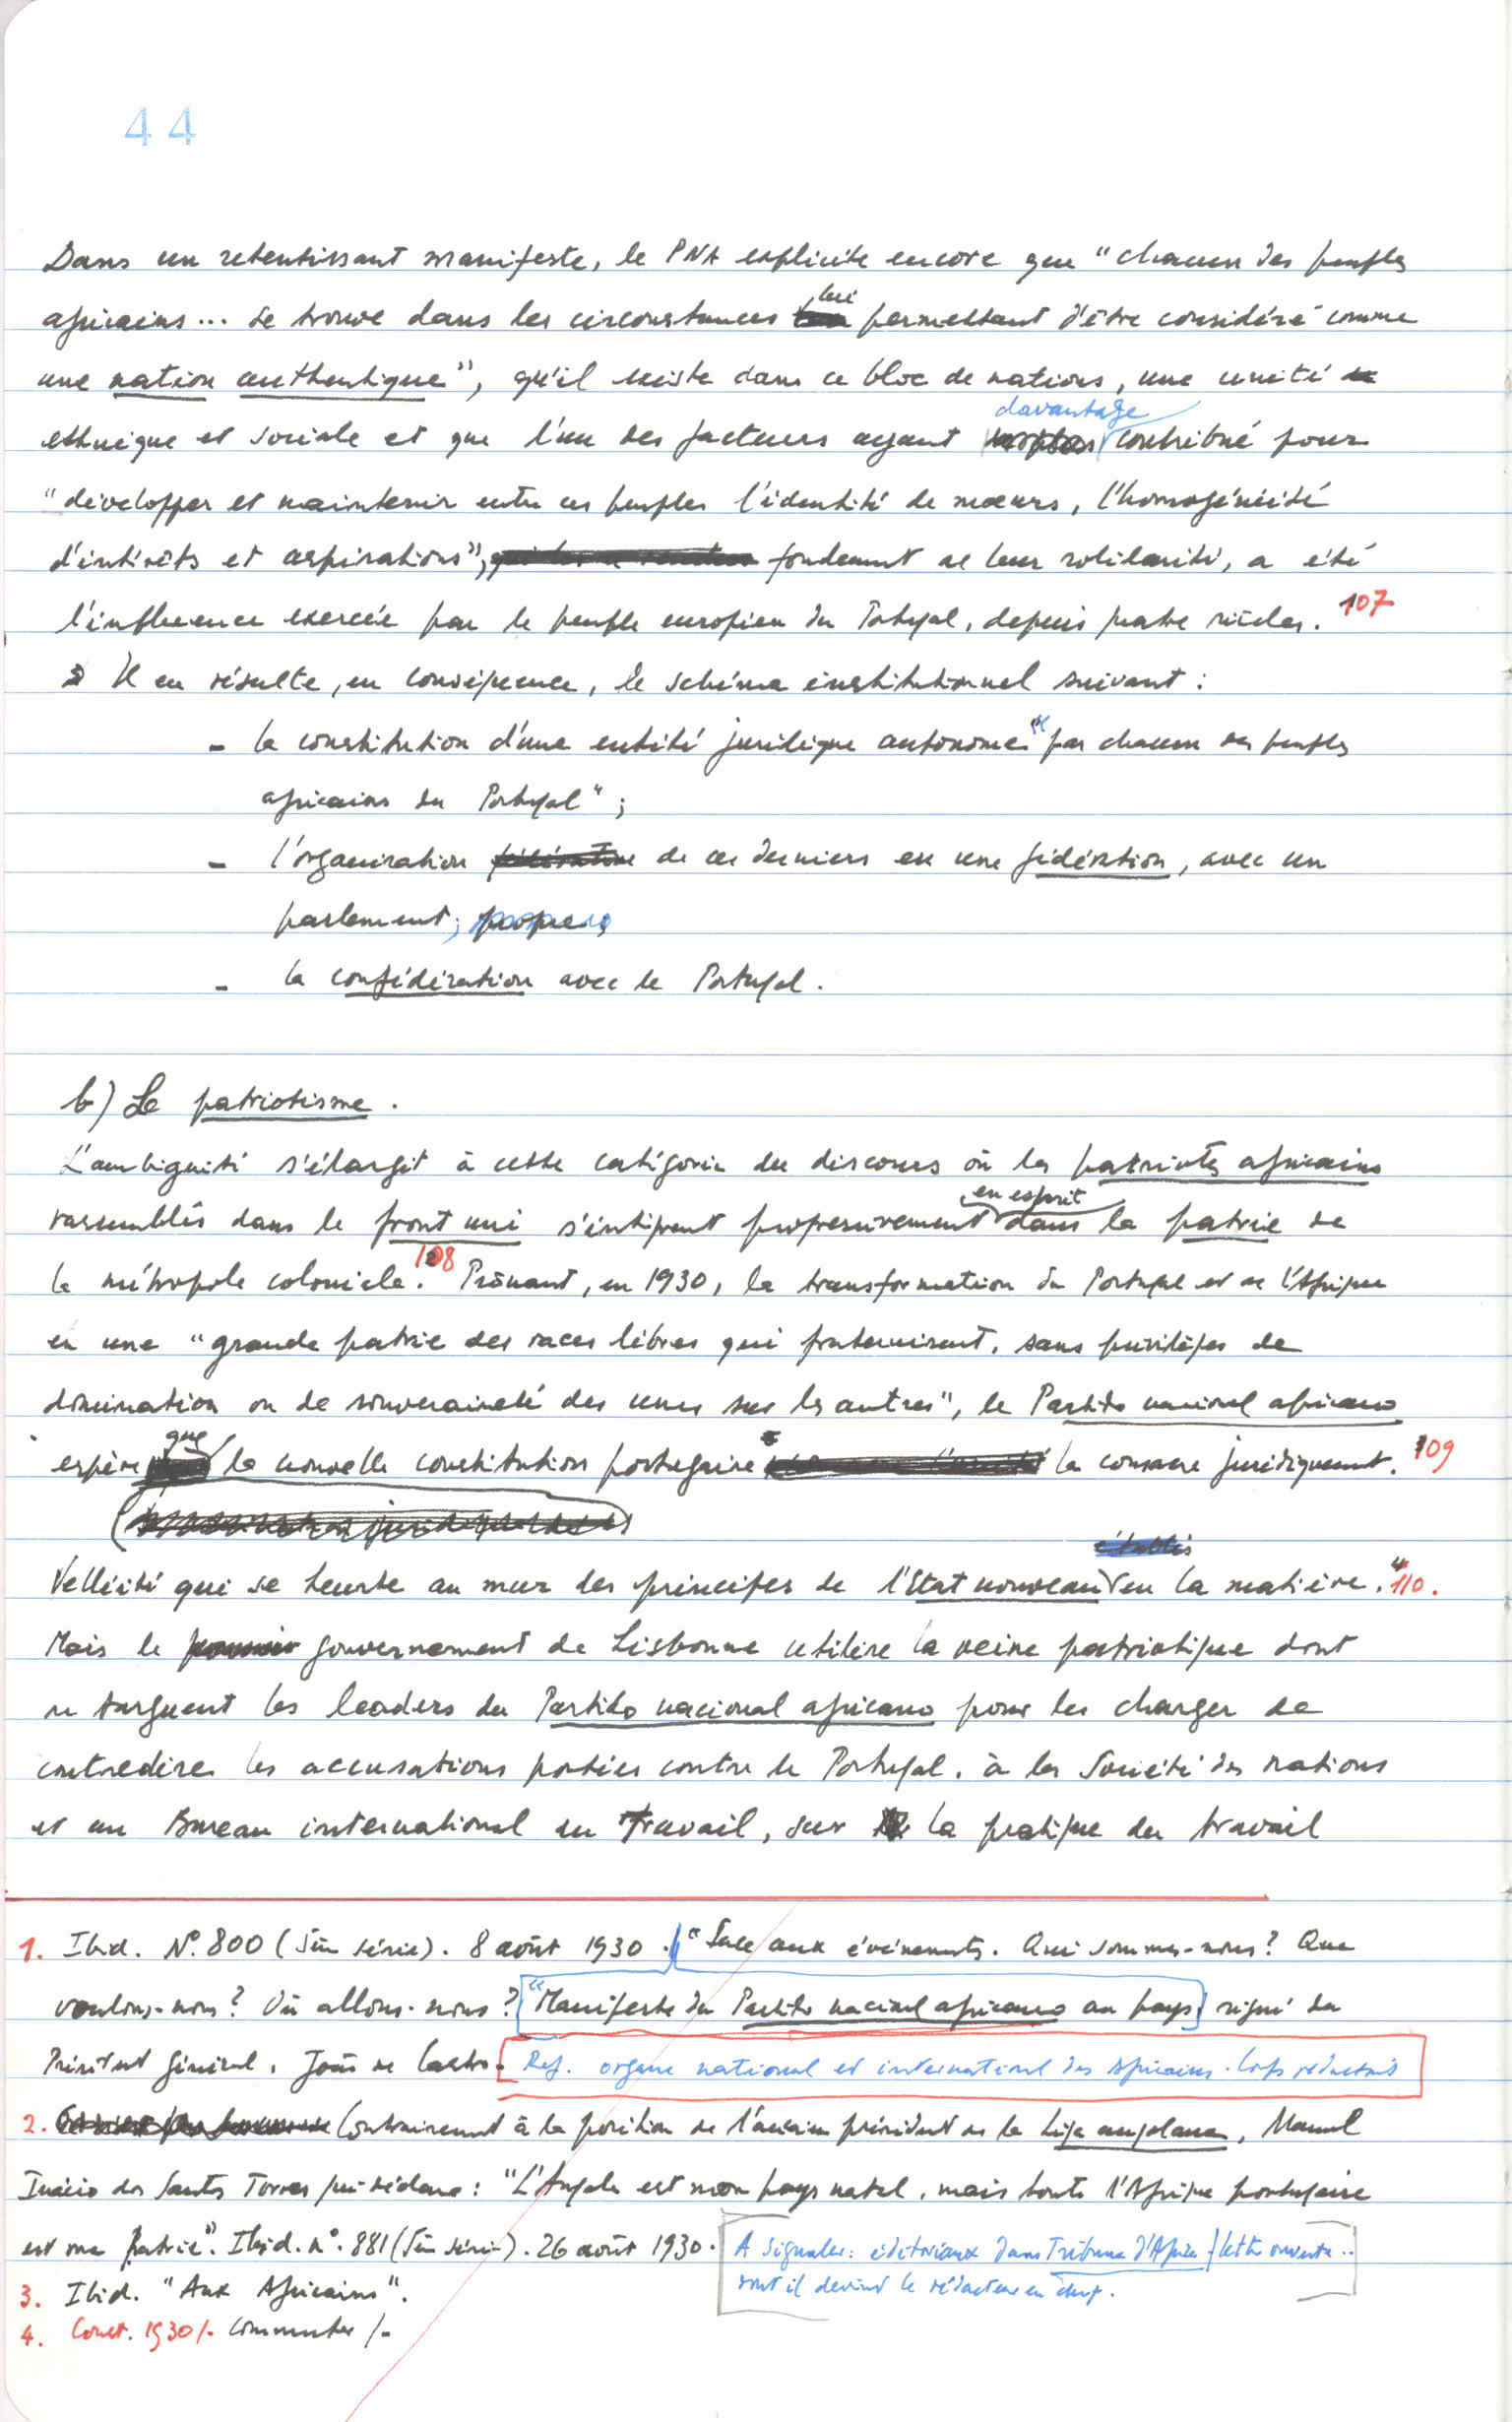 44
Dans un retentissant manifeste, le PNA explicite encore que "chacun des peuples
africains... se trouve dans les circonstances lui permettant d'être considéré comme
une nation authentique", qu'il existe dans ce bloc de nations, une unité
ethnique et sociale et que l'un des facteurs ayant davantage contribué pour
"développer et maintenir entre ces peuples l'identité de mœurs, l'homogénéité
d'intérêts et aspirations", fondement de leur solidarité, a été
l'influence exercée par le peuple européen du Portugal, depuis quatre siècles. 107
Il en résulte, en conséquence, le schéma institutionnel suivant :
- la constitution d'une entité juridique autonome "par chacun des peuples
africains du Portugal" ;
- l'organisation de ces derniers en une fédération, avec un
parlement ; propre,
- la confédération avec le Portugal.
b) Le patriotisme.
L'ambiguité s'élargit à cette catégorie du discours où les patriotes africains
rassemblés dans le front uni s'intègrent progressivement en esprit dans la patrie de
la métropole coloniale. 108 Prônant, en 1930, la transformation du Portugal et de l'Afrique
en une "grande patrie des races libres qui fraternisent, sans privilèges de
domination ou de souveraineté des unes sur les autres", le Partido nacional africano
espère que la nouvelle constitution portugaise la consacre juridiquement. 109
Velléité qui se heurte au mur des principes de l'Etat nouveau en la matière. 110.
Mais le gouvernement de Lisbonne utilise la veine patriotique dont
se targuent les leaders du Partido nacional africano pour les charger de
contredire les accusations portées contre le Portugal, à la Société des nations
et au Bureau international du Travail, sur la pratique du travail
1. Ibid. Nº 800 (5ème série). 8 août 1930. "Face aux événements. Qui sommes-nous ? Que
voulons-nous ? Où allons-nous ? "Manifeste du Partido nacional africano au pays, signé du
Président général, João de Castro. Ref. organe national et international des Africains. Corps rédactorial
2. Contrairement à la position de l'ancien président de la Liga angolana, Manuel
Inácio dos Santos Torres qui déclare : "L'Angola est mon pays natal, mais toute l'Afrique portugaise
est ma patrie". Ibid. nº. 881 (5ème série). 26 août 1930. A signaler : éditoriaux dans Tribune d'Afrique / lettre ouverte..
dont il devint le rédacteur en chef.
3. Ibid. "Aux Africains".
4. Const. 1930/- commenter /-